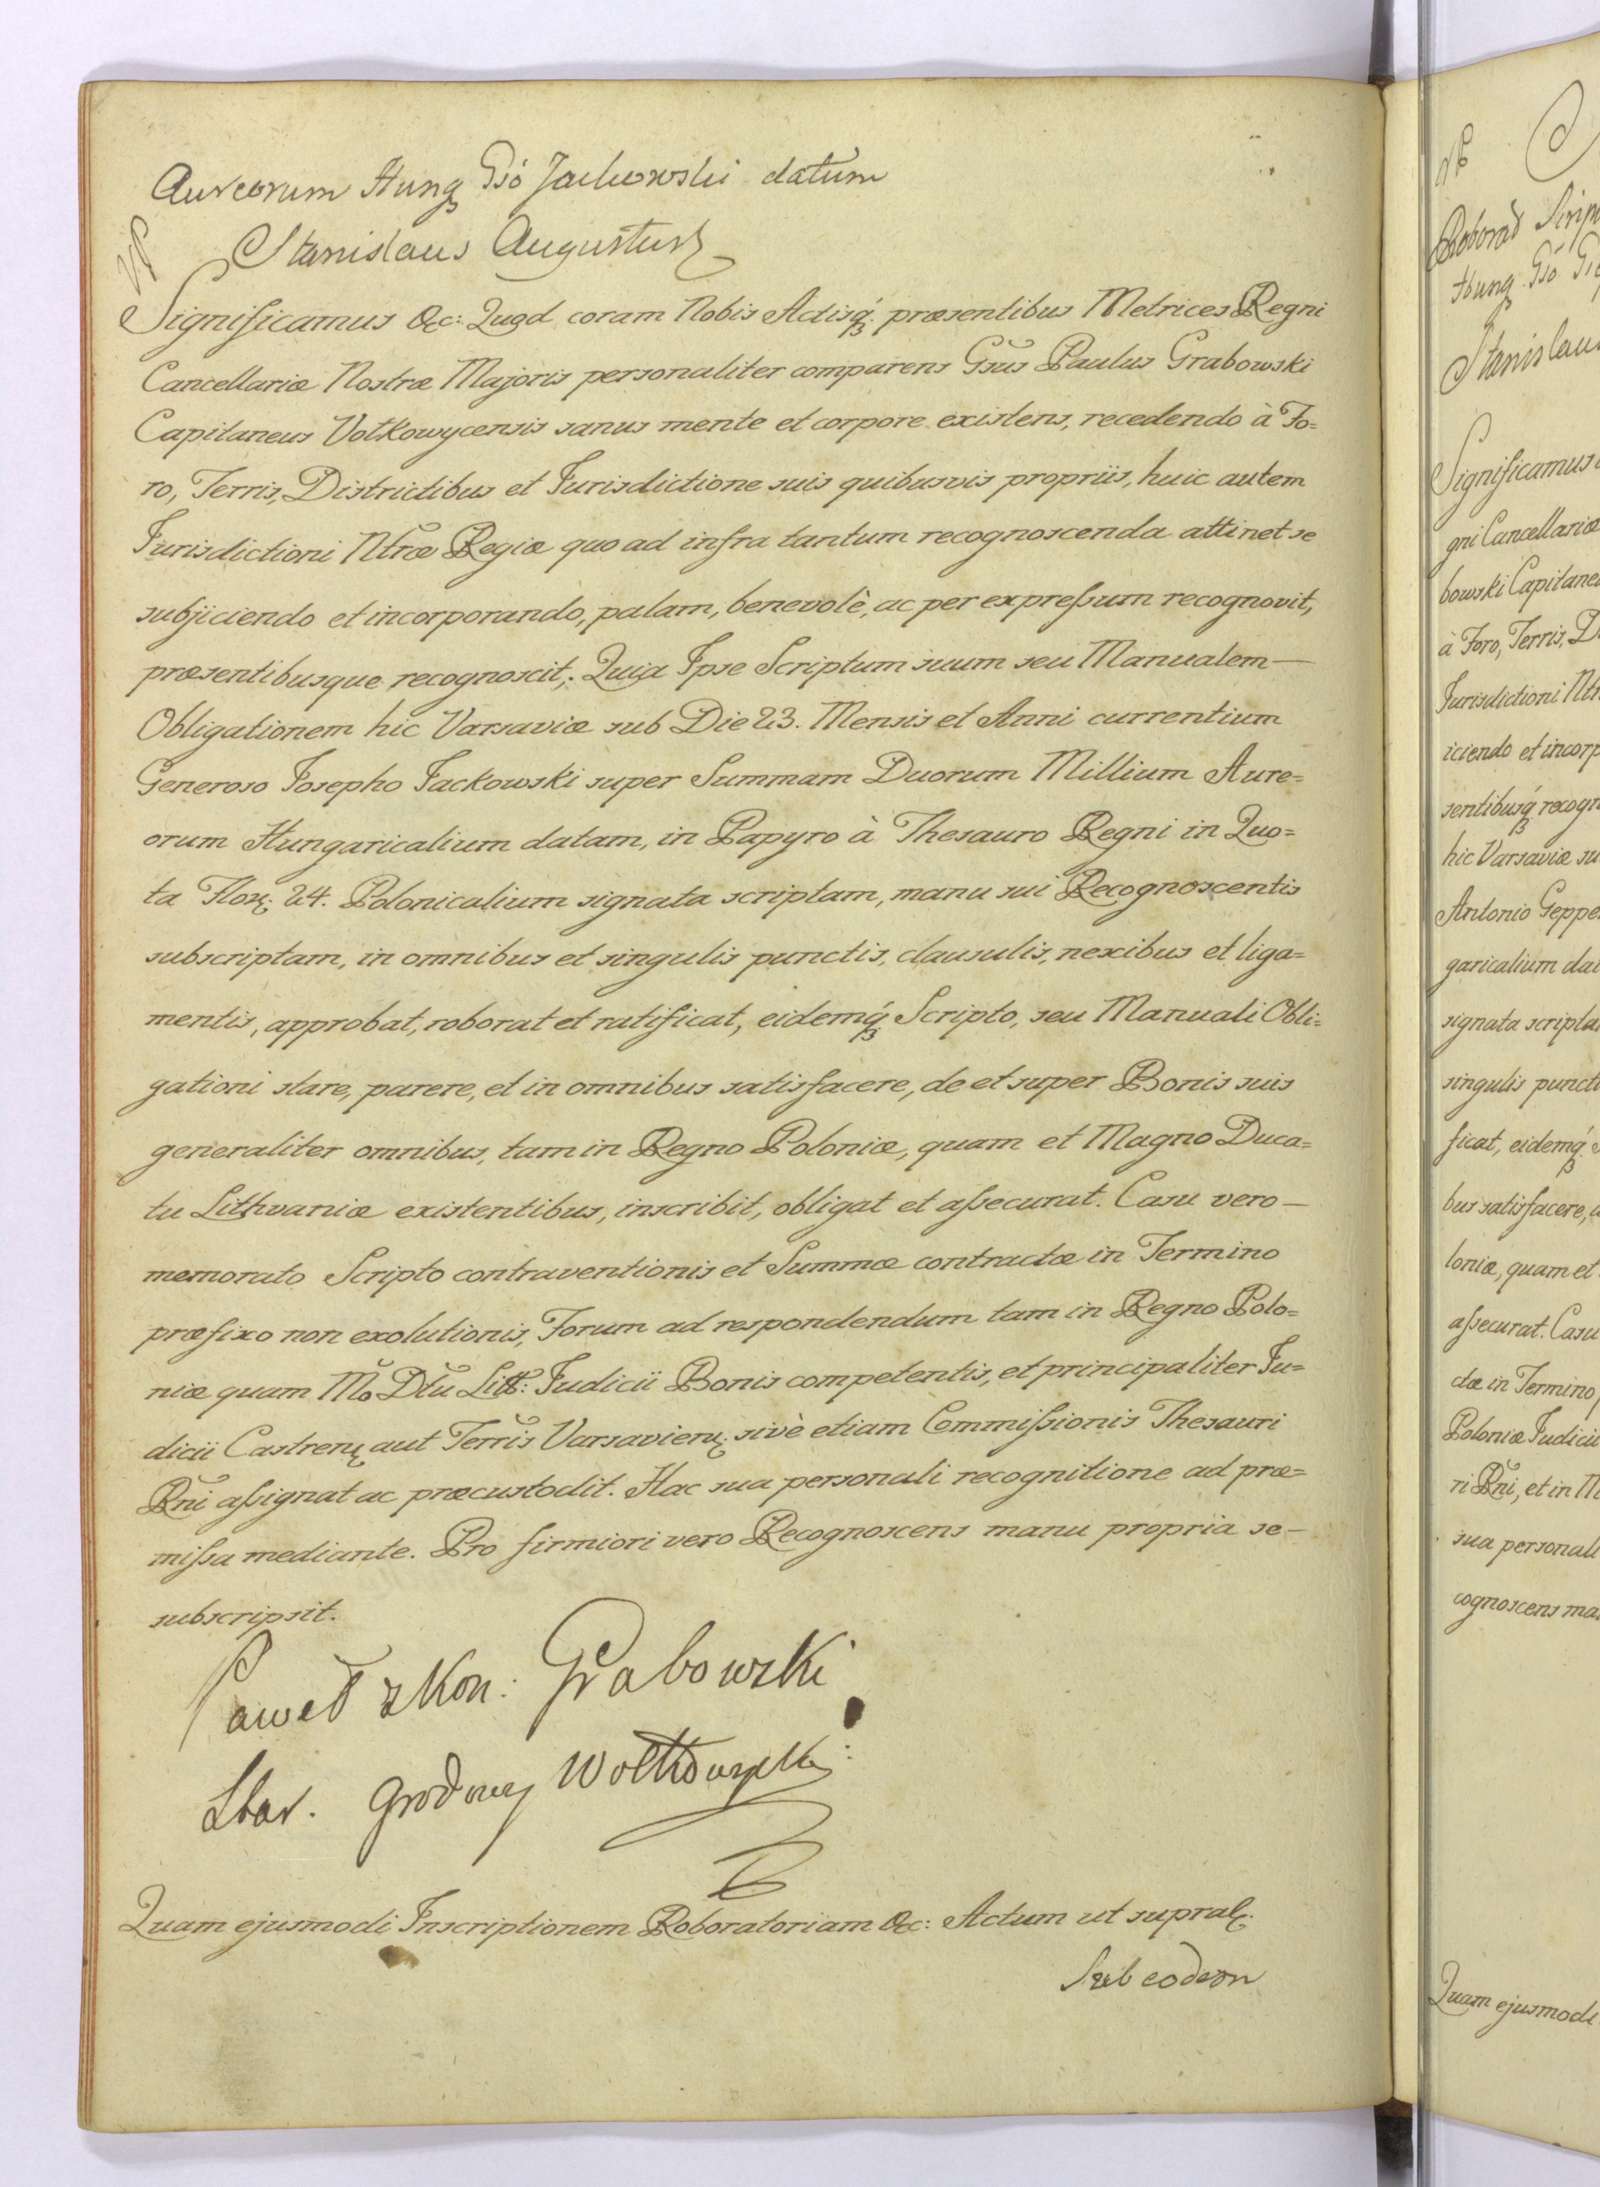 Aureorum Hung Gsó Jackowski datum
Stanislaus Augustus
Significamus &c: Quod coram Nobis Actisq́ præsentibus Metrices Regni
Cancellariæ Nostræ Majoris personaliter comparens Gsus Paulus Grabowski
Capitaneus Vołkowycensis sanus mente et corpore existens, recedendo à Fo=
ro, Terris, Districtibus et Jurisdictione suis quibusvis propriis, huic autem
Jurisdictioni Ntræ Regiæ quo ad infra tantum recognoscenda attinet se
subjiciendo et incorporando, palam, benevolè, ac per expressum recognovit,
præsentibusque recognoscit; Quia Ipse Scriptum suum seu Manualem—
Obligationem hic Varsaviæ sub Die 23. Mensis et Anni currentium
Generoso Josepho Jackowski super Summam Duorum Millium Aure=
orum Hungaricalium datam, in Papyro à Thesauro Regni in Quo=
ta Flor: 24. Polonicalium signata scriptam, manu sui Recognoscentis
subscriptam, in omnibus et singulis punctis, clausulis, nexibus et liga=
mentis, approbat, roborat et ratificat, eidemq́ Scripto, seu Manuali Obli=
gationi stare, parere, et in omnibus satisfacere, de et super Bonis suis
generaliter omnibus, tam in Regno Poloniæ, quam et Magno Duca=
tu Lithvaniæ existentibus, inscribit, obligat et assecurat. Casu vero—
memorato Scripto contraventionis et Summæ contractæ in Termino
præfixo non exolutionis, Forum ad respondendum tam in Regno Polo=
niæ quam Mo Dtu Litt: Judicii Bonis competentis, et principaliter Ju=
dicii Castren: aut Terris Varsavien: sivè etiam Commissionis Thesauri
Rni assignat ac præcustodit. Hac sua personali recognitione ad præ=
missa mediante. Pro firmiori vero Recognoscens manu propria se—
subscripsit.
Paweł z Kon: Grabowski
Star. Grodowy Wołkowyski:
Quam ejusmodi Inscriptionem Roboratoriam &c: Actum ut supra
Sub eodem
Roborat Scrip
Hung Gsó
Stanislau
Significamus
gni Cancellariæ
bowski Capitane
à Foro, Terris, D
Jurisdictioni Nt
iciendo et incorp
sentibusq́ recogn
hic Varsaviæ su
Antonio Geppe
garicalium da
signata scripta
singulis puncti
ficat, eidemq́
bus satisfacere,
loniæ, quam et
assecurat. Casu
dæ in Termino
Poloniæ Judicii
ri Rni, et in M
sua personali
cognoscens ma
Quam ejusmodi